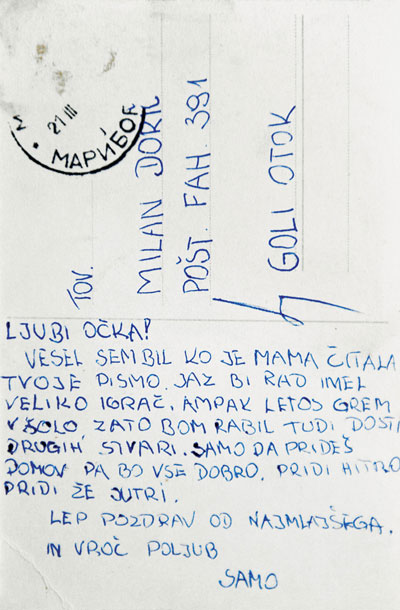 M
21 III
* МАРИБОР
TOV.
MILAN DORIČ
POŠT. FAH. 391
GOLI OTOK
LJUBI OČKA!
VESEL SEM BIL KO JE MAMA ČITALA
TVOJE PISMO. JAZ BI RAD IMEL
VELIKO IGRAČ. AMPAK LETOS GREM
V ŠOLO ZATO BOM RABIL TUDI DOSTI
DRUGIH STVARI. SAMO DA PRIDEŠ
DOMOV PA BO VSE DOBRO. PRIDI HITRO
PRIDI ŽE JUTRI.
LEP POZDRAV OD NAJMLAJŠEGA.
IN VROČ POLJUB
SAMO